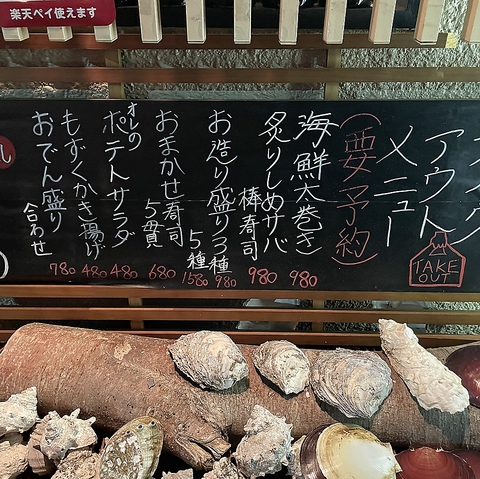 楽天ペイ使えます
テイク
アウト
メニュー
TAKE
OUT
（要予約）
海鮮太巻き 980
炙りしめサバ
棒寿司 980
お造り盛り3種 980
5種 1580
おまかせ寿司
5貫 680
オレの
ポテトサラダ 480
もずくかき揚げ 480
おでん盛り
合わせ 780